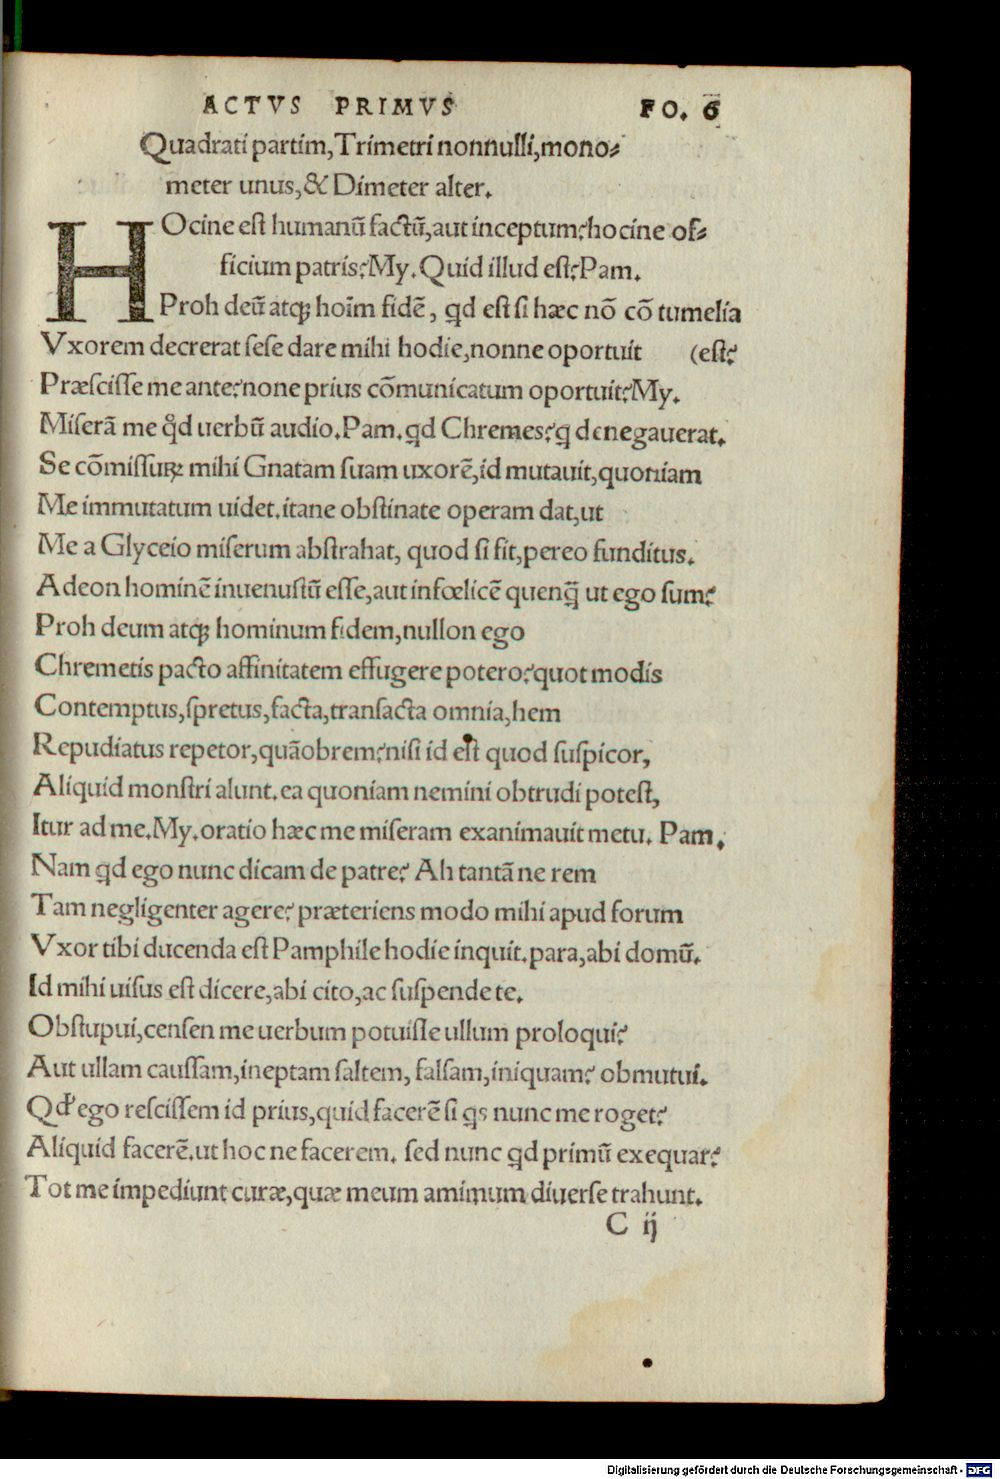 ACTVS PRIMVS FO. 6
Quadrati partim, Trimetri nonnulli, mono⸗
meter unus, & Dimeter alter.
HOcine est humanũ factũ, aut inceptum? hocine of⸗
ficium patris? My. Quid illud est? Pam.
Proh deũ atq; hoīm fidẽ, qd est si hæc nõ cõ tumelia
Vxorem decrerat sese dare mihi hodie, nonne oportuit (est?
Præscisse me ante? none prius cõmunicatum oportuit? My.
Miserã me qd uerbũ audio. Pam. qd Chremes? q denegauerat.
Se cõmissuꝝ mihi Gnatam suam uxorẽ, id mutauit, quoniam
Me immutatum uidet. itane obstinate operam dat, ut
Me a Glyceio miserum abstrahat, quod si fit, pereo funditus.
Adeon hominẽ inuenustũ esse, aut infœlicẽ quenq̃ ut ego sum?
Proh deum atq; hominum fidem, nullon ego
Chremetis pacto affinitatem effugere potero? quot modis
Contemptus, spretus, facta, transacta omnia, hem
Repudiatus repetor, quãobrem? nisi id est quod suspicor,
Aliquid monstri alunt. ea quoniam nemini obtrudi potest,
Itur ad me. My. oratio hæc me miseram exanimauit metu. Pam.
Nam qd ego nunc dicam de patre? Ah tantã ne rem
Tam negligenter agere? præteriens modo mihi apud forum
Vxor tibi ducenda est Pamphile hodie inquit. para, abi domũ.
Id mihi uisus est dicere, abi cito, ac suspende te.
Obstupui, censen me uerbum potuisse ullum proloqui?
Aut ullam caussam, ineptam saltem, falsam, iniquam? obmutui.
Qd' ego rescissem id prius, quid facerẽ si qs nunc me roget?
Aliquid facerẽ. ut hoc ne facerem. sed nunc qd primũ exequar?
Tot me impediunt curæ, quæ meum amimum diuerse trahunt.
C ij
Digitalisierung gefördert durch die Deutsche Forschungsgemeinschaft - DFG